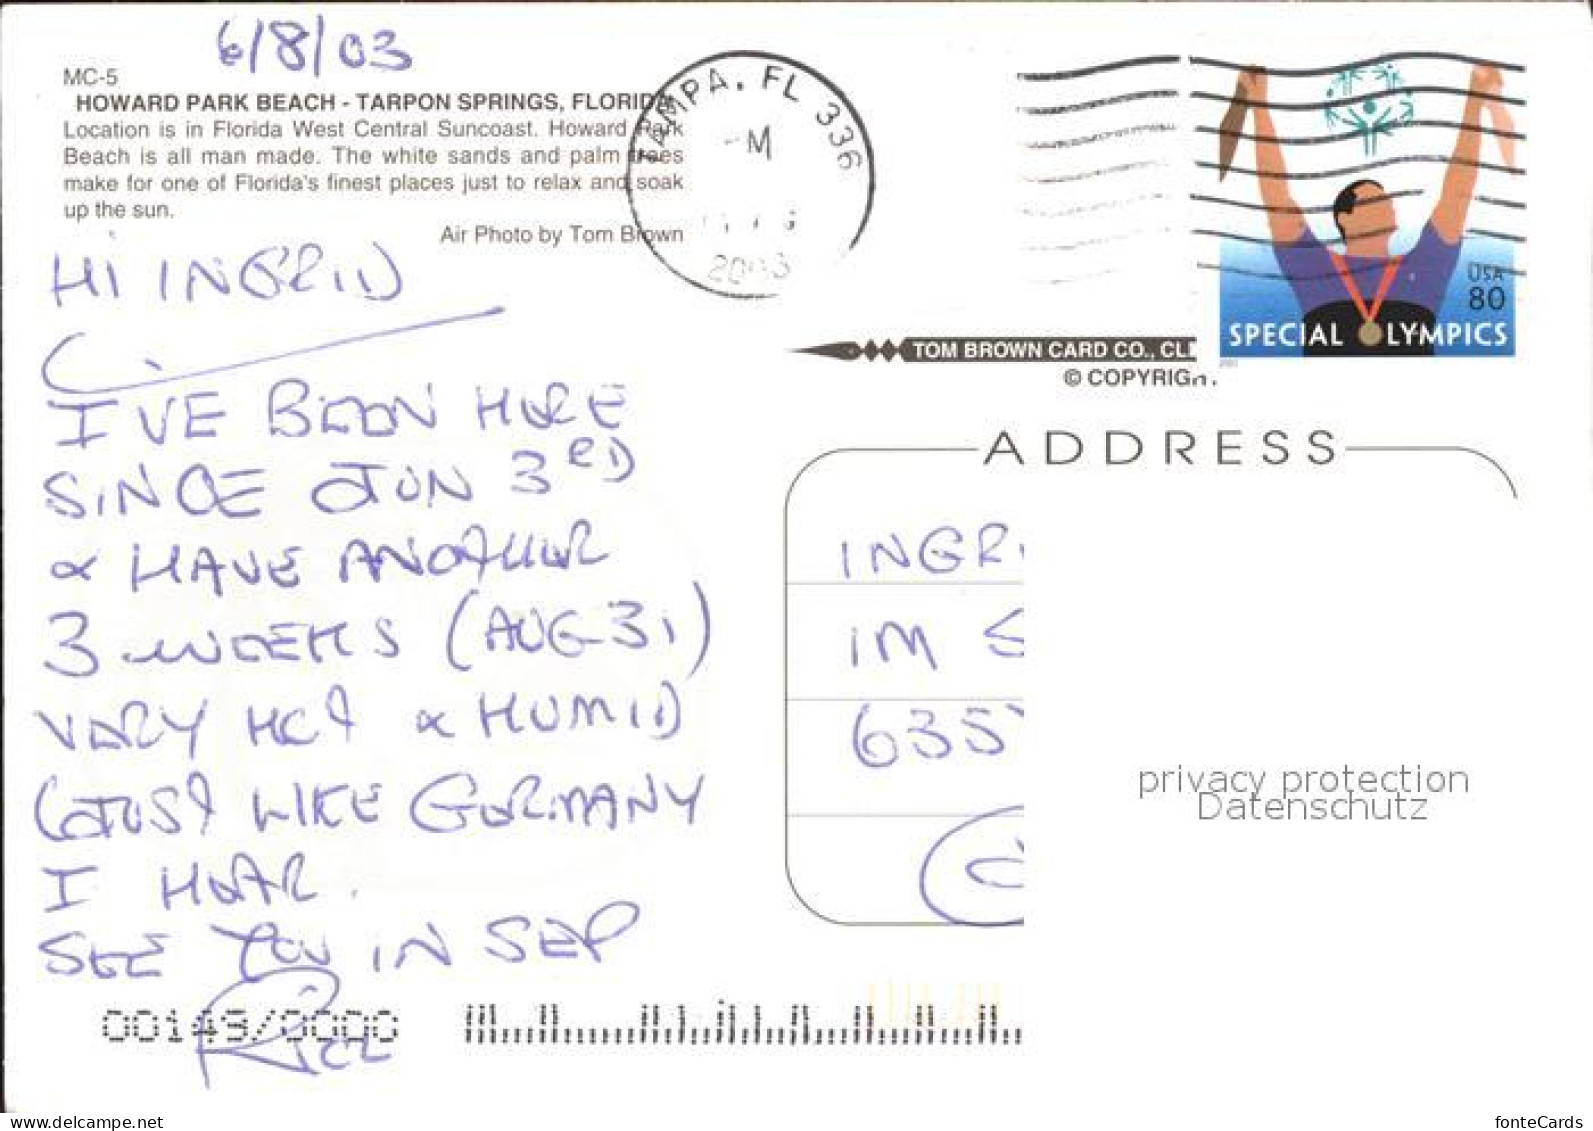 6/8/03
MC-5
HOWARD PARK BEACH - TARPON SPRINGS, FLORIDA
Location is in Florida West Central Suncoast. Howard Park
Beach is all man made. The white sands and palm trees
make for one of Florida's finest places just to relax and soak
up the sun.
Air Photo by Tom Brown
TAMPA, FL 336
M
2003
USA
80
SPECIAL OLYMPICS
TOM BROWN CARD CO., CL
© COPYRIG
HI INGRID
I'VE BEEN HERE
SINCE JUN 3RD
& HAVE ANOTHER
3 WEEKS (AUG 31)
VERY HOT & HUMID
(JUST LIKE GERMANY
I HEAR.
SEE YOU IN SEP
ADDRESS
INGRI
IM S
635
privacy protection
Datenschutz
00143/0000
www.delcampe.net
fonteCards